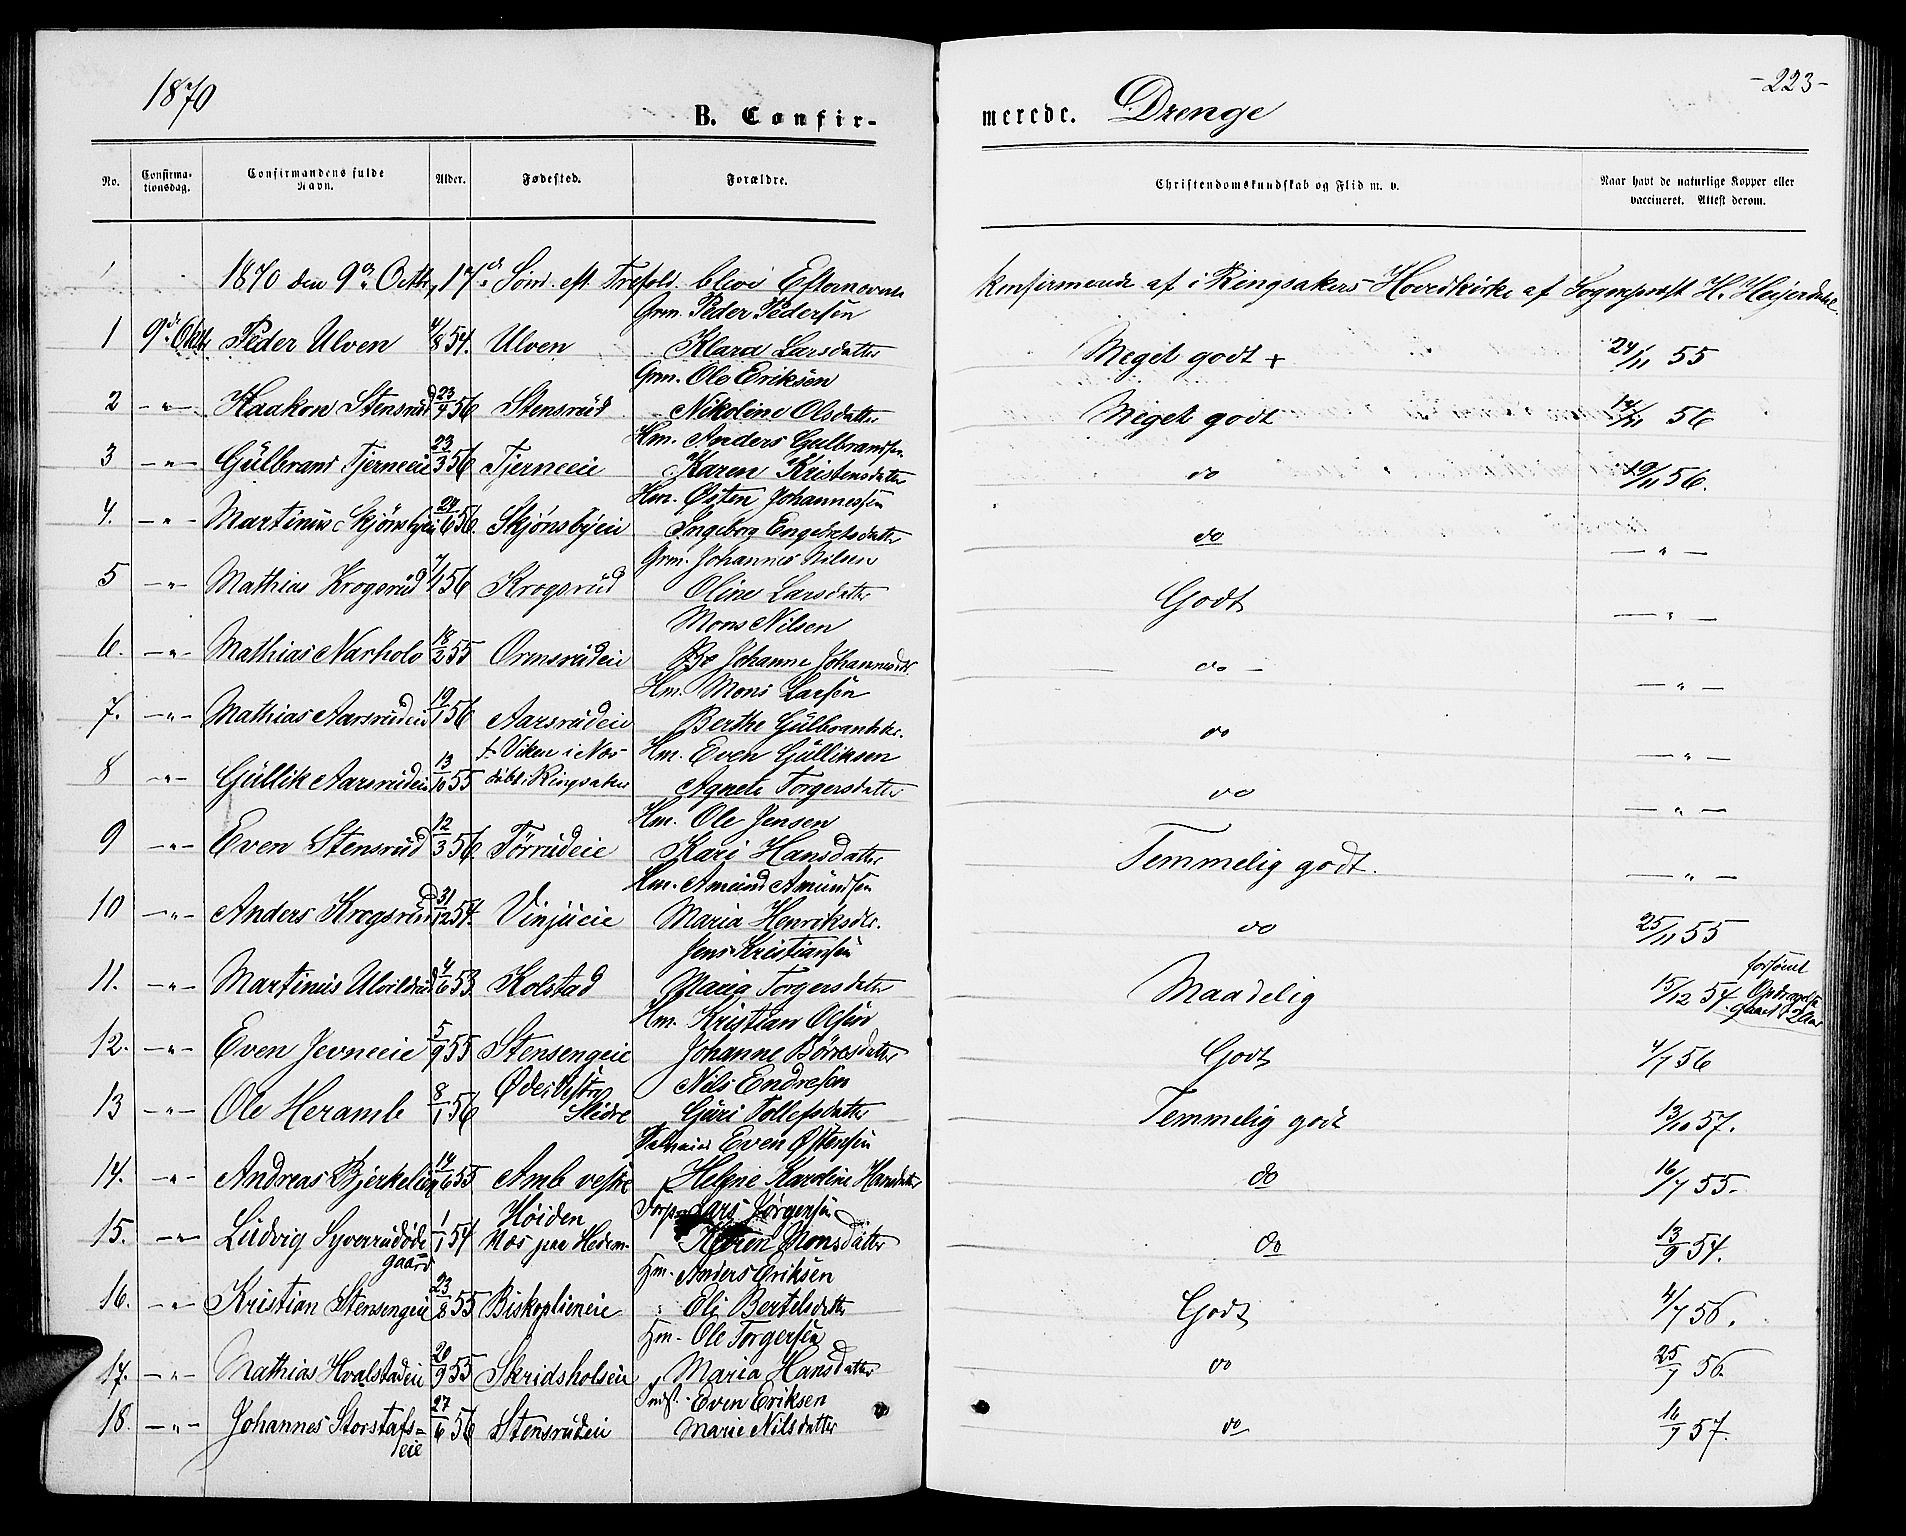 1870
-223-
B. Confir-
merede. Drenge
No. Confirma-tionsdag. Confirmandens fulde Navn. Alder. Fødested. Forældre. Christendomskundskab og Flid m. v. Naar havt de naturlige Kopper eller vaccineret. Attest derom.
1870 den 9de Octb, 17de Sønd. eft. Trefold. bleve Efternevnte
konfirmerede af i Ringsakers Hovedkirke af Sogneprest H. Heijerdahl
Grm. Peder Pedersen
1 9de Oktb Peder Ulven 4/8 54. Ulven Klara Larsdatter Meget godt + 24/11 55
Grm. Ole Eriksen
2 -"- Haakon Stensrud 23/4 56 Stensrud Nikoline Olsdatter Meget godt 12/11 56
Hm. Anders Gulbrandsen
3 -"- Gulbrand Tjerneeie 23/3 56 Tjerneeie Karen Kristensdatter do 19/11 56.
Hm. Østen Johannessen
4. -"- Martinus Skjønsbyeie 24/6 56. Skjønsbyeie Ingeborg Engebretsdatter do -"-
Grm. Johannes Nilsen
5 -"- Mathias Krogsrud 7/1 56 Krogsrud Oline Larsdatter Godt -"-
Mons Nilsen
6. -"- Mathias Narholo 18/2 55 Ormsrudeie Johanne Johannesdtr. do - -"-
Hm. Mons Larsen
7. -"- Mathias Aarsrudeie 19/1 56 Aarsrudeie Berthe Gulbrandsdtr. do -"-
f. Viken i Næs- Hm. Even Gulliksen
8 -"- Gullik Aarsrudeie 13/10 55 døbt i Ringsaker Agnete Torgersdatter do -"-
Hm. Ole Jensen
9 -"- Even Stensrud 12/3 56. Tørrudeie Kari Hansdatter Temmelig godt. -"-
Hm. Amund Amundsen
10 -"- Anders Krogsrud 31/12 54. Vinjueie Maria Henriksdtr. do 25/11 55
Jens Kristiansen
11. -"- Martinus Ulvildsrud 4/6 53 Kolstad Maria Torgersdatter Maadelig 15/12 54. forsømt Opdragelse gaaet 2 Aar
Hm. Kristian Olsen
12. -"- Even Jevneeie 5/9 55 Stensengeie Johanne Børresdatter Godt 4/7 56
Øde i Vestre Slidre Nils Endresen
13 -"- Ole Heramb 8/1 56 Guri Tollefsdatter Temmelig godt 13/10 57.
Even Østensen
14. -"- Andreas Bjerkelien 14/6 55 Amb vestre Helene Karoline Hansdatter do 16/7 55.
Høiden Forp. Lars Jørgensen
15. -"- Ludvig Syverrudødegaard 1/1 54 Næs paa Hedem. Karen Monsdatter do 13/9 54.
Hm. Anders Eriksen
16. -"- Kristian Stensengeie 23/8 55 Biskoplieneie Eli Bertelsdatter Godt 4/7 56.
Hm. Ole Torgersen
17. -"- Mathias Hvalstadeie 20/9 55 Skridsholseie Maria Hansdatter do 25/7 56.
Indst. Even Eriksen
18. -"- Johannes Storstafs=eie 27/6 56 Stensrudeie Marie Nilsdatter do 16/7 57.